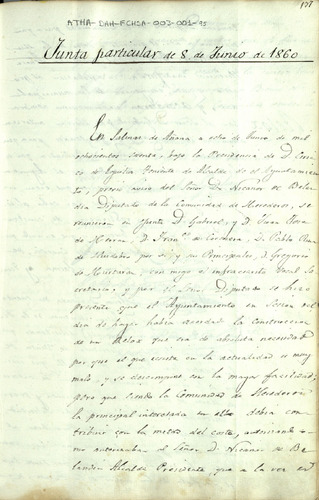 177
ATHA-DAH-FCHSA-003-001-95
Junta particular de 8 de Junio de 1860
En Salinas de Añana a ocho de Junio de mil
ochocientos sesenta, bajo la Presidencia de D.
de Eguiluz Teniente de Alcalde de el Ayuntamien-
to, previo aviso del Señor D. Nicanor de Belan-
dia Diputado de la Comunidad de Herederos, se
reunieron en Junta D. Gabriel, y D. Juan José
de Herran, D. Fran.co de D. Pablo Ruiz
de por si, y su Principales, D. Gregorio
de Hurtaran, con migo el infraescrito Vocal Se-
cretario, y por el Señor Diputado se hizo
presente que el Ayuntamiento en Sesion del
dia de hoy habia acordado la construccion
de un Relox que era de absoluta necesidad
por que el que existe en la actualidad es muy
malo, y se descompone con la mayor facilidad;
pero que siendo la Comunidad de Herederos
la principal interesada en ello debia con-
tribuir con la mitad del coste, autorizando co-
mo autorizaban al Señor D. Nicanor de Be-
landia Alcalde Presidente que a la vez es